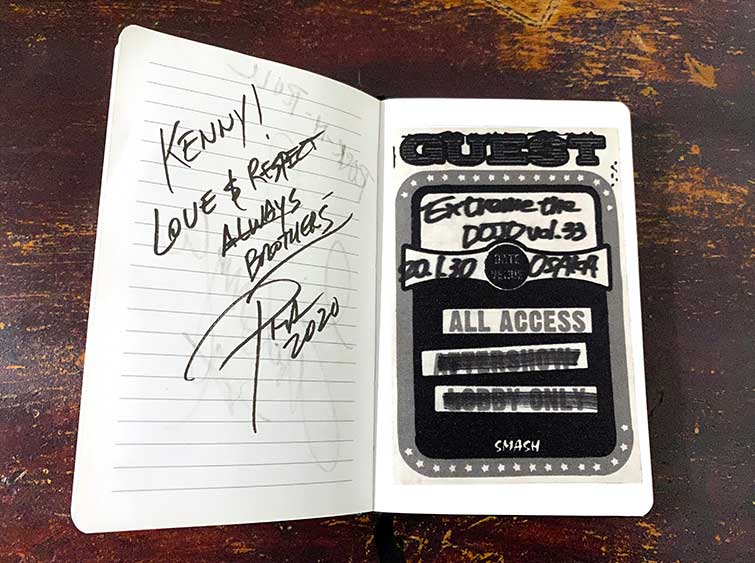 KENNY!
LOVE & RESPECT
ALWAYS
BROTHERS
2020
GUEST
Extreme the
DOJO vol.33
20.1.30 DATE VENUE OSAKA
ALL ACCESS
AFTERSHOW
LOBBY ONLY
SMASH